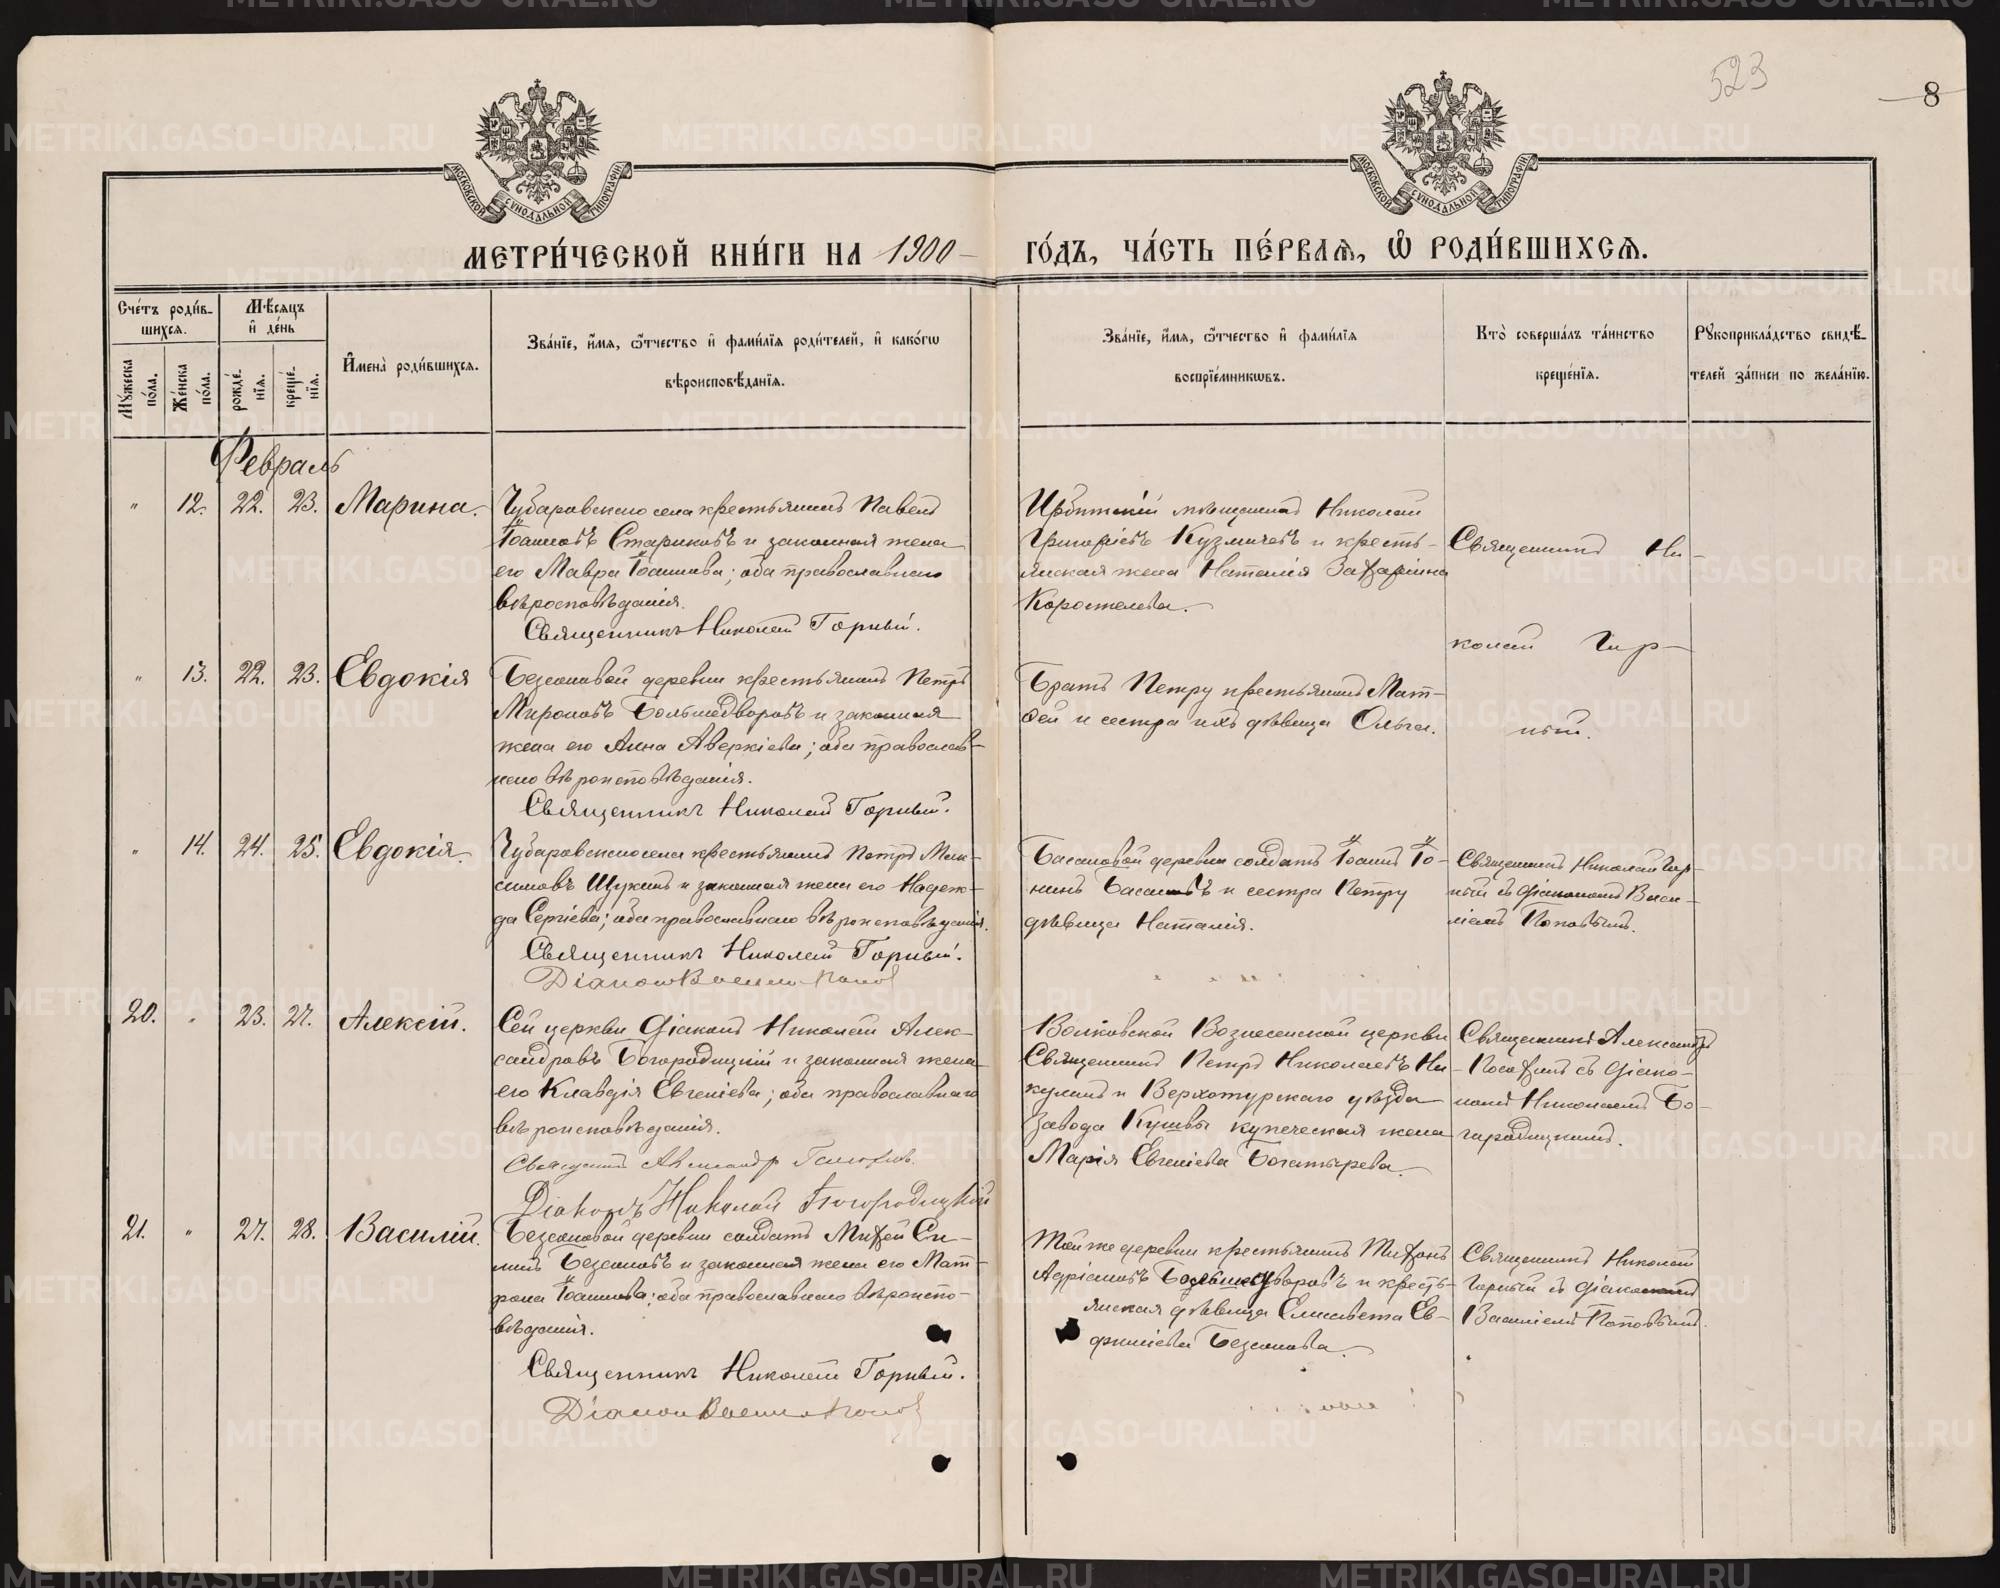 523
8
МОСКОВСКОЙ СѴНОДАЛЬНОЙ ТИПОГРАФІИ
МОСКОВСКОЙ СѴНОДАЛЬНОЙ ТИПОГРАФІИ
МЕТРИ́ЧЕСКОЙ КНИ́ГИ НА 1900 ГО́ДЪ, ЧА́СТЬ ПЕ́РВАѦ, Ѽ РОДИ́ВШИХСѦ.
Сче́тъ роди́в-
шихсѧ.
Мѣ́сѧцъ
и҆ де́нь
Мꙋ́жеска
по́ла.
Же́нска
по́ла.
рожде́-
нїѧ.
креще́-
нїѧ.
И҆мена̀ роди́вшихсѧ.
Зва́нїе, и҆́мѧ, ѻ҆́тчество и҆ фами́лїѧ роди́телей, и҆ како́гѡ
вѣроисповѣ́данїѧ.
Зва́нїе, и҆́мѧ, ѻ҆́тчество и҆ фами́лїѧ
воспрїе́мникѡвъ.
Кто̀ соверша́лъ та́инство
креще́нїѧ.
Рꙋкоприкла́дство свидѣ́-
телей за́писи по жела́нїю.
Февраль
" 12. 22. 23. Марина.
Чубаровскаго села крестьянинъ Павелъ
Іоанновъ Стариковъ и законная жена
его Мавра Іоаннова; оба православнаго
вѣроисповѣданія.
Священникъ Николай Горный.
Ирбитскій мѣщанинъ Николай
Григоріевъ Кузмичевъ и кресть-
янская жена Наталія Захаріина
Коростелева.
Священникъ Ни-
колай Гор-
ный.
" 13. 22. 23. Евдокія
Безсоновой деревни крестьянинъ Петръ
Мироновъ Большедворовъ и законная
жена его Анна Аверкіева; оба православ-
наго вѣроисповѣданія.
Священникъ Николай Горный.
Братъ Петру крестьянинъ Мат-
ѳей и сестра ихъ дѣвица Ольга.
" 14. 24. 25. Евдокія.
Чубаровскаго села крестьянинъ Петръ Мак-
симовъ Щукинъ и законная жена его Надеж-
да Сергіева; оба православнаго вѣроисповѣданія.
Священникъ Николай Горный.
Діаконъ Василій Поповъ
Басановой деревни солдатъ Іоаннъ Іо-
нинъ Басановъ и сестра Петру
дѣвица Наталія.
Священникъ Николай Гор-
ный съ діакономъ Васи-
ліемъ Поповымъ.
20. " 23. 27. Алексій.
Сей церкви діаконъ Николай Алек-
сандровъ Богородицкій и законная жена
его Клавдія Евгеніева; оба православнаго
вѣроисповѣданія.
Священникъ Александръ
Діаконъ Николай Богородицкій
Волковской Вознесенской церкви
Священникъ Петръ Николаевъ Ни-
кулинъ и Верхотурскаго уѣзда
завода Кушвы купеческая жена
Марія Евгеніева Богатырева.
Священникъ Александръ
съ діако-
номъ Николаемъ Бо-
городицкимъ.
21. " 27. 28. Василій.
Безсоновой деревни солдатъ Михей Си-
линъ Безсоновъ и законная жена его Мат-
рона Іоаннова; оба православнаго вѣроиспо-
вѣданія.
Священникъ Николай Горный.
Діаконъ Василій Поповъ
Той же деревни крестьянинъ Тихонъ
Адріановъ Большедворовъ и кресть-
янская дѣвица Елисавета Ев-
фиміева Безсонова.
Священникъ Николай
Горный съ діакономъ
Василіемъ Поповымъ.
METRIKI.GASO-URAL.RU